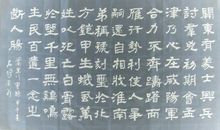 關東有義士興兵
討羣凶初期會盟
津乃心在咸陽軍
合力不齊躊躇而
雁行勢利使人爭
嗣還自相戕淮南
弟稱號刻璽於北
方鎧甲生蟣虱萬
姓以死亡白骨露
於野千里無雞鳴
生民百遺一念之
斷人腸